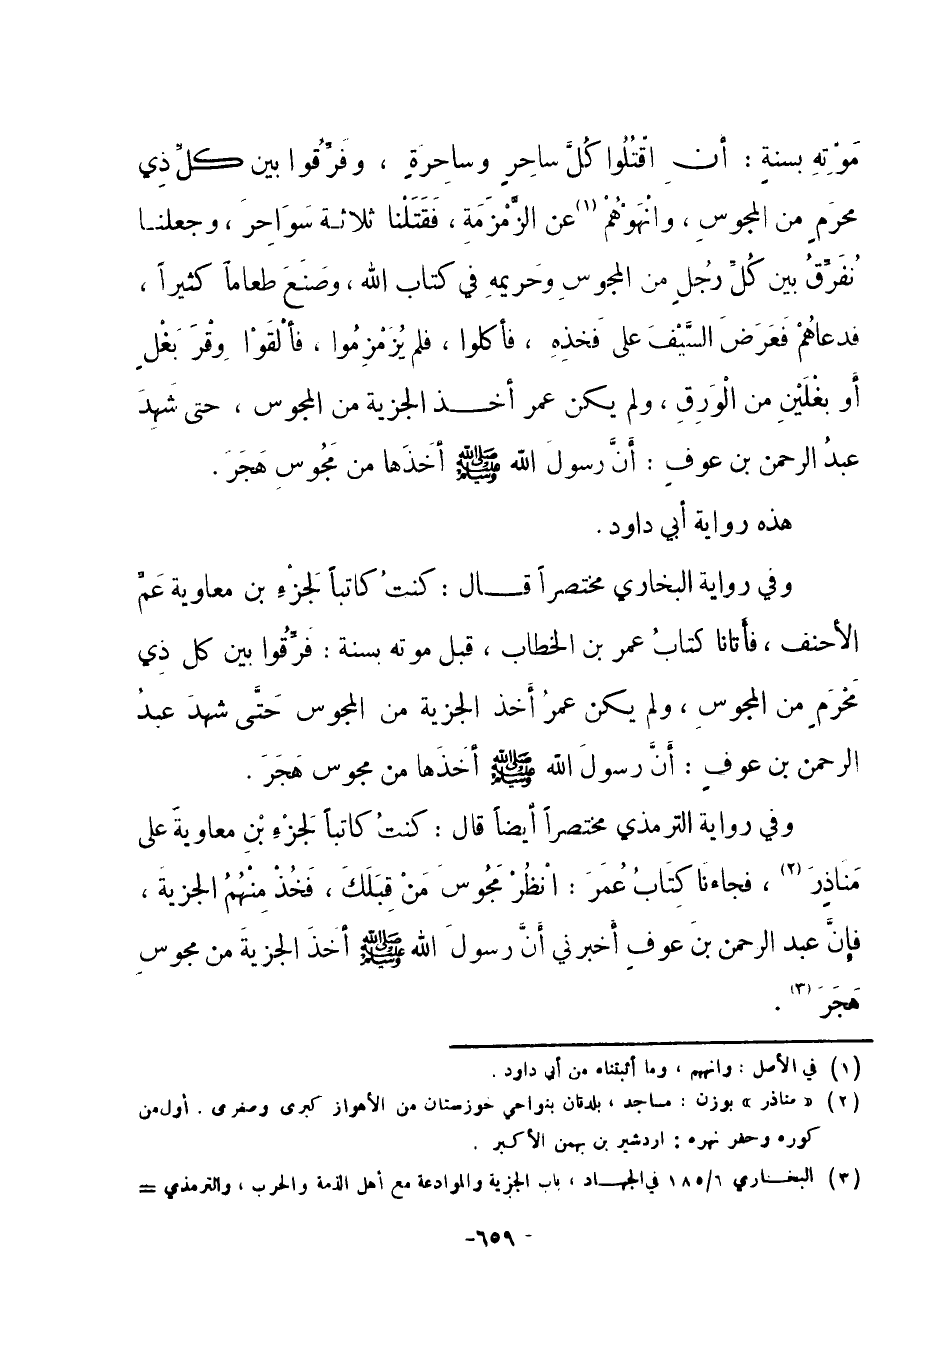 مَوْتِهِ بسنةٍ : أن اقْتُلُوا كُلَّ ساحِرٍ وساحِرَةٍ ، وفَرِّقُوا بين كلِّ ذِي
محرَمٍ من المجوسِ ، وانْهَوْهُمْ (١) عن الزَّمْزَمَةِ ، فَقَتَلْنا ثلاثة سَوَاحِرَ ، وجعلنا
نُفَرِّقُ بين كُلِّ رَجُلٍ من المجوسِ وحَريمِهِ في كتاب الله ، وصَنَعَ طعاماً كثيراً ،
فدعاهُمْ فَعَرَضَ السَّيْفَ على فَخذِهِ ، فأكلوا ، فلم يُزَمْزِمُوا ، فألْقَوْا وِقْرَ بَغْلٍ
أو بغْلَيْنِ من الْوَرِقِ ، ولم يكن عمر أخذ الجزية من المجوس ، حتى شَهِدَ
عبدُ الرحمن بن عوفٍ : أنَّ رسولَ الله ﷺ أخَذَها من مَجُوسِ هَجَرَ .
هذه رواية أبي داود .
وفي رواية البخاري مختصراً قال : كنتُ كاتباً لَجزْءِ بن معاوية عَمِّ
الأحنف ، فأتانا كتابُ عمر بن الخطاب ، قبل موته بسنة : فَرِّقُوا بين كل ذي
مَحْرَمٍ من المجوسِ ، ولم يكن عمرُ أخذ الجزية من المجوس حَتَّى شهدَ عبدُ
الرحمن بن عوفٍ : أنَّ رسولَ الله ﷺ أخَذَها من مجوس هَجَرَ .
وفي رواية الترمذي مختصراً أيضاً قال : كنتُ كاتباً لَجزْءِ بْنِ معاويةَ على
مَنَاذِرَ (٢) ، فجاءنا كِتَابُ عُمَرَ : انْظُرْ مَجُوسَ مَنْ قِبَلَكَ ، فَخُذْ مِنْهُمُ الجزيةَ ،
فإنَّ عبد الرحمن بنَ عوفٍ أخبرني أنَّ رسولَ الله ﷺ أخذَ الجزيةَ من مجوسِ
هَجَرَ (٣) .
(١) في الأصل : وانهم ، وما أثبتناه من أبي داود .
(٢) « مناذر » بوزن : مساجد ، بلدتان بنواحي خوزستان من الأهواز كبرى وصغرى . أول من
كوره وحفر نهره : اردشير بن بهمن الأكبر .
(٣) البخاري ١٨٥/٦ في الجهاد ، باب الجزية والموادعة مع أهل الذمة والحرب ، والترمذي =
- ٦٥٩-